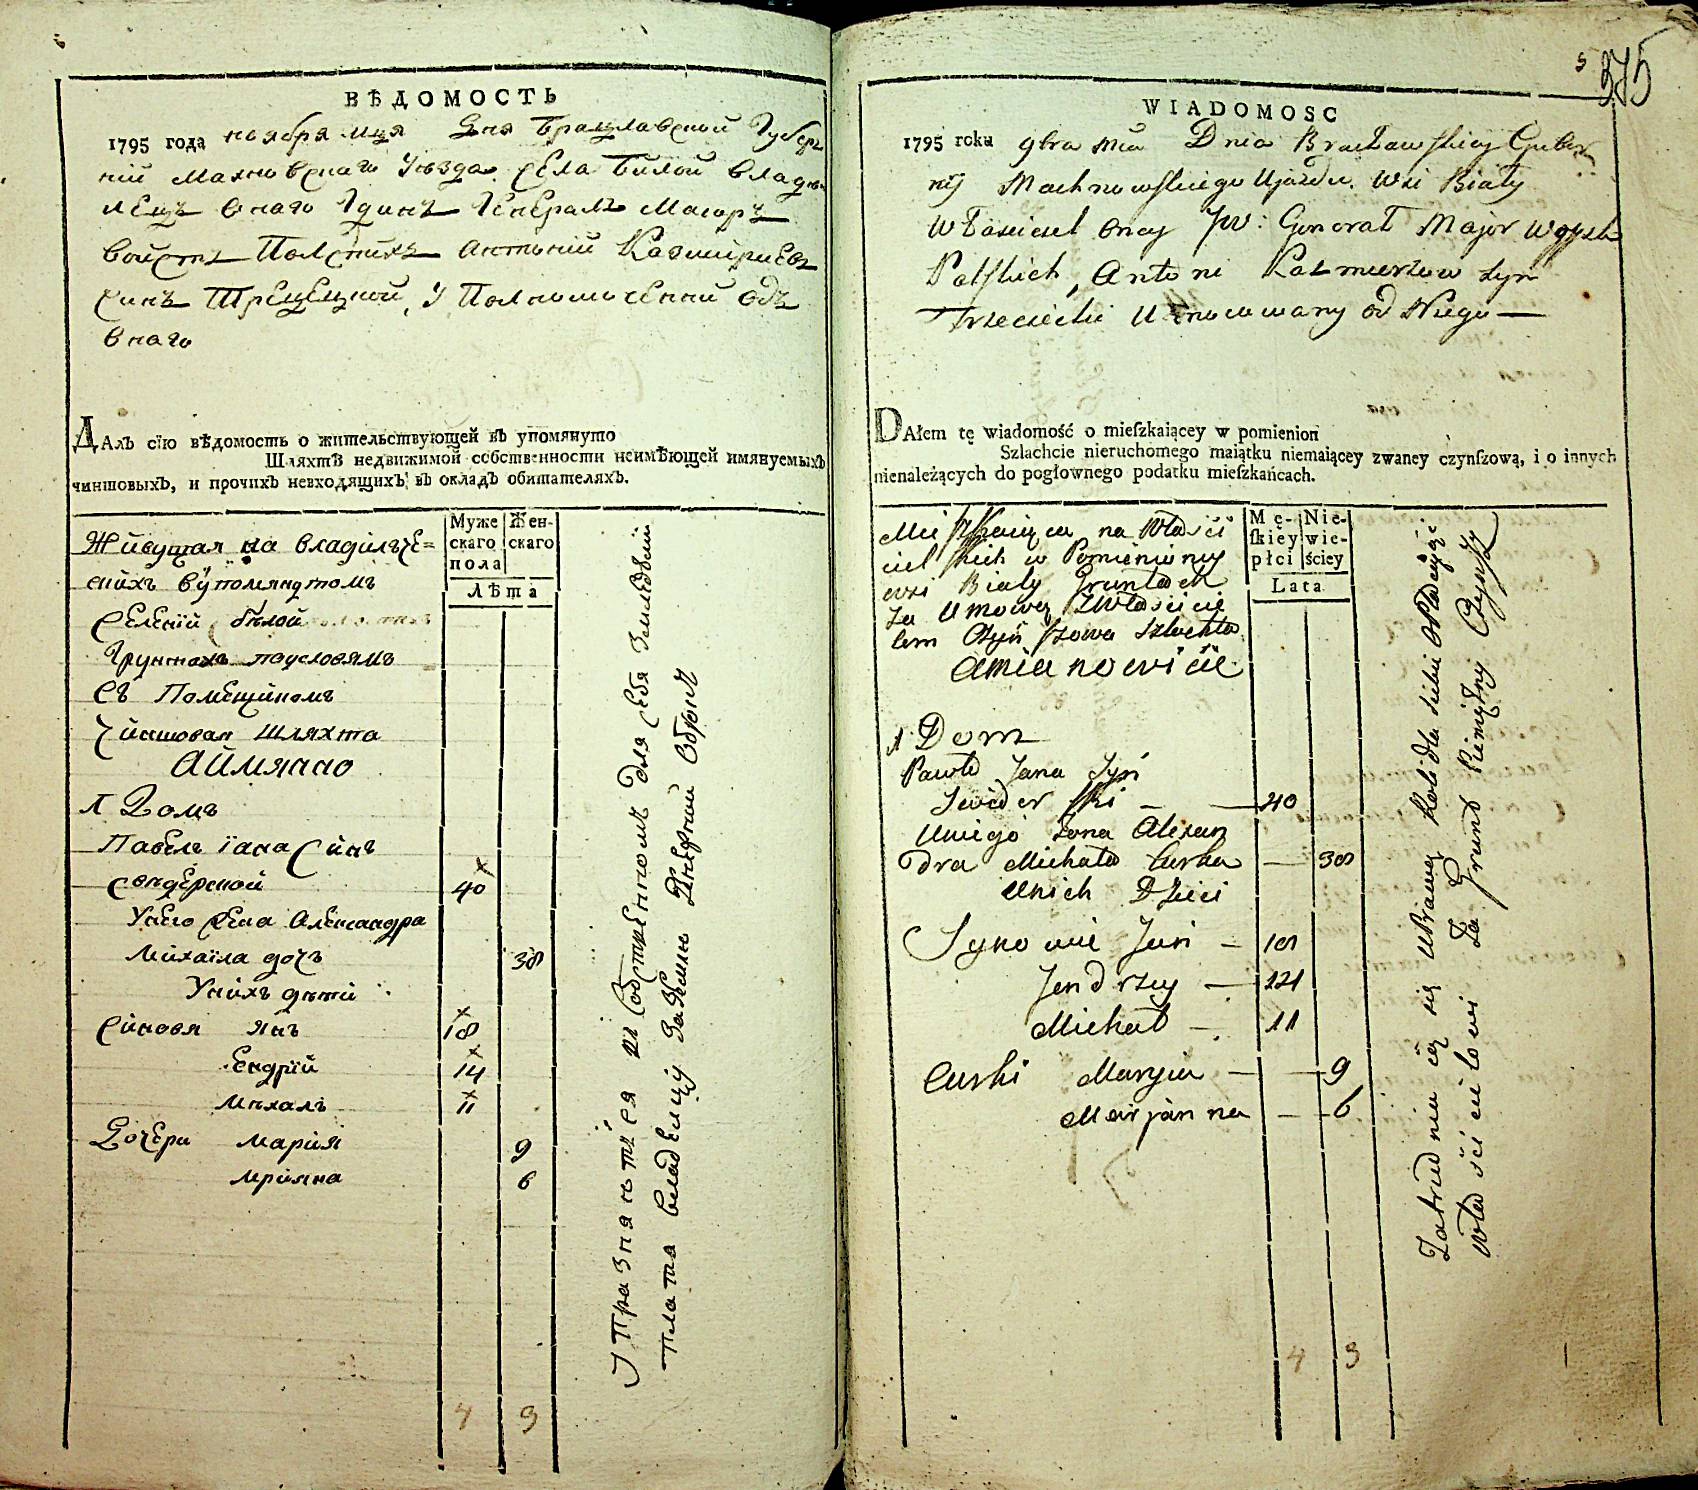 ВѢДОМОСТЬ
1795 года ноября мця Дня Брацлавской Губер
ній Махновскаго Уѣзда села Билой влады
лецъ онаго Генералъ Маіоръ
войскъ Полскихъ Антоній Казимиріевъ
синъ Трецецкой, у Полномоченій одъ
онаго
ДАлъ сїю вѣдомость о жительствующей въ упомянуто
Шляхтѣ недвижимой собственности неимѣющей имянуемыхъ
чиншовыхъ, и прочихъ невходящихъ въ окладъ обитателяхъ.
Муже
скаго
пола
Жен-
скаго
Лѣта
Живущая на владилче=
скихъ вупомянутомъ
селеній бѣлой
Грунтахъ поусловямъ
съ Помещикомъ
Чиншовая шляхта
Аймянно
1 Домъ
Павелъ Іана Синъ
Свидерской 40
Унего жена Александра
Михаїла дочъ 38
Унихъ дѣти
Синовя Янъ 18
Ендрій 14
Михалъ 11
Дочери Марія 9
Мріяна 6
4 3
Упразняются для себя
Плата владелцу заземлю
5 375
WIADOMOSC
1795 roku 9bra Mca Dnia Bracławskiey Guber
nij Machnowskiego Ujazdu. Wsi Biały
Właściciel oney JW: Generał Major Woysk
Polskich, Antoni Kazmierzow syn
Trzeciecki Umocowany od Niego —
DAłem tę wiadomość o mieſzkaiącey w pomienion
Szlachcie nieruchomego maiątku niemaiącey zwaney czynſzową, i o innych
nienależących do pogłownego podatku mieſzkańcach.
Mę-
ſkiey
płci
Nie-
wie-
ściey
Lata
Mieszkaiąca na Właści
cielskich w Pomienioney
wsi Biały Gruntach
za Umową z Właścicie
lem Czynszowa Szlachta
Amianowicie
1 Dom
Paweł Jana Syn
Swiderski — 40
Uniego Zona Alexan
dra Michała Curka — 38
Unich Dzieci
Synowie Jan — 18
Jendrzey — 14
Michał — 11
Curki Maryia — 9
Marjanna — 6
4 3
Zatrudniaią się Uprawą Roli dla siebie
Właścicielowi Za Grunt Pieniężny Czynszy